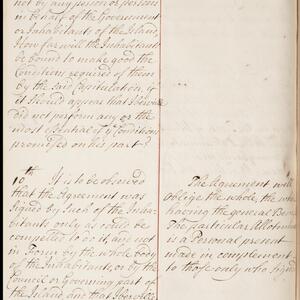 not by any person or persons
in behalf of the Government
or Inhabitants of the Island,
How far will the Inhabitants
be bound to make good the
Conditions required of them
by the Said Capitulation, if
it Should appear that
did not perform any or the
most Essential of ye Conditions
promised on his part?
10th It is to be observed
that the Agreement was
Signed by Such of the Inha-
bitants only as could be
compelled to do it, are not
in Force by the whole body
of the Inhabitants, or by the
Council or Governing part of
the Island, and that therefore
The Agreement will
Oblige the whole, the whole
having the general Benefit
The particular Allotment
is a Personal present
made in complement
to those only who signed